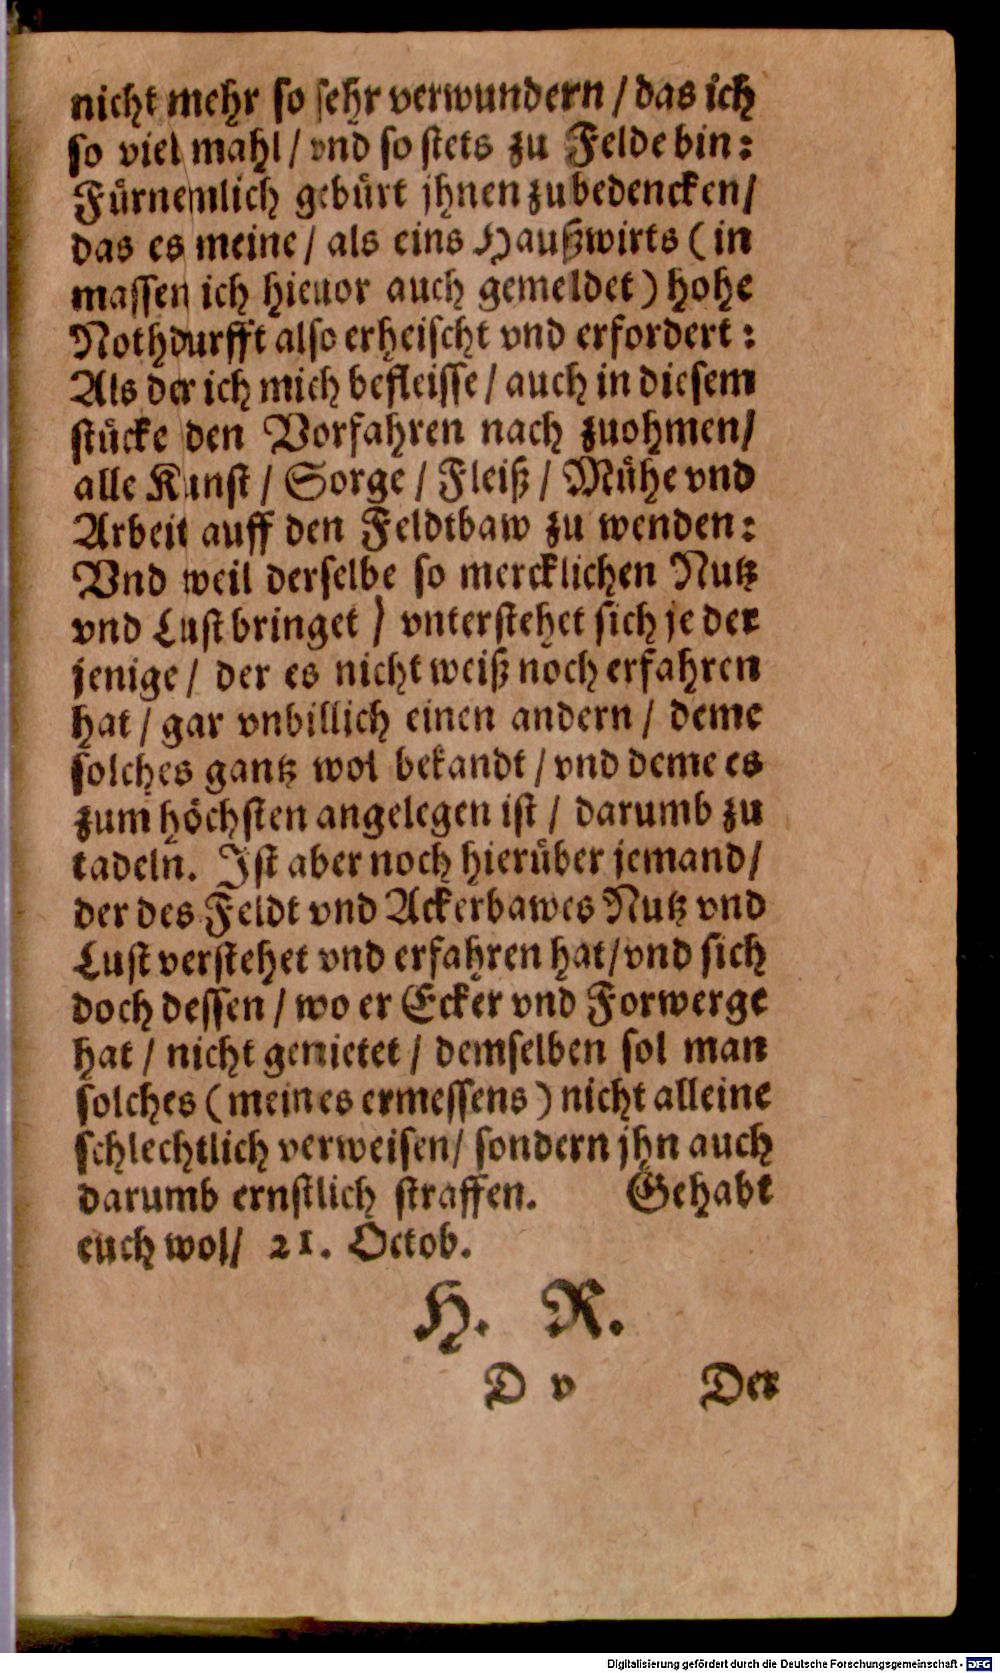 nicht mehr so sehr verwundern / das ich
so viel mahl / vnd so stets zu Felde bin:
Fürnemlich gebürt jhnen zubedencken /
das es meine / als eins Haußwirts ( in
massen ich hieuor auch gemeldet ) hohe
Nothdurfft also erheischt vnd erfordert :
Als der ich mich befleisse / auch in diesem
stücke den Vorfahren nach zuohmen /
alle Kunst / Sorge / Fleiß / Mühe vnd
Arbeit auff den Feldtbaw zu wenden:
Vnd weil derselbe so mercklichen Nutz
vnd Lust bringet ) vnterstehet sich je der
jenige / der es nicht weiß noch erfahren
hat / gar vnbillich einen andern / deme
solches gantz wol bekandt / vnd deme es
zum höchsten angelegen ist / darumb zu
tadeln. Ist aber noch hierüber jemand /
der des Feldt vnd Ackerbawes Nutz vnd
Lust verstehet vnd erfahren hat / vnd sich
doch dessen / wo er Ecker vnd Forwerge
hat / nicht genietet / demselben sol man
solches ( meines ermessens ) nicht alleine
schlechtlich verweisen / sondern jhn auch
darumb ernstlich straffen. Gehabt
euch wol / 21. Octob.
H. R.
D v Der
Digitalisierung gefördert durch die Deutsche Forschungsgemeinschaft - DFG